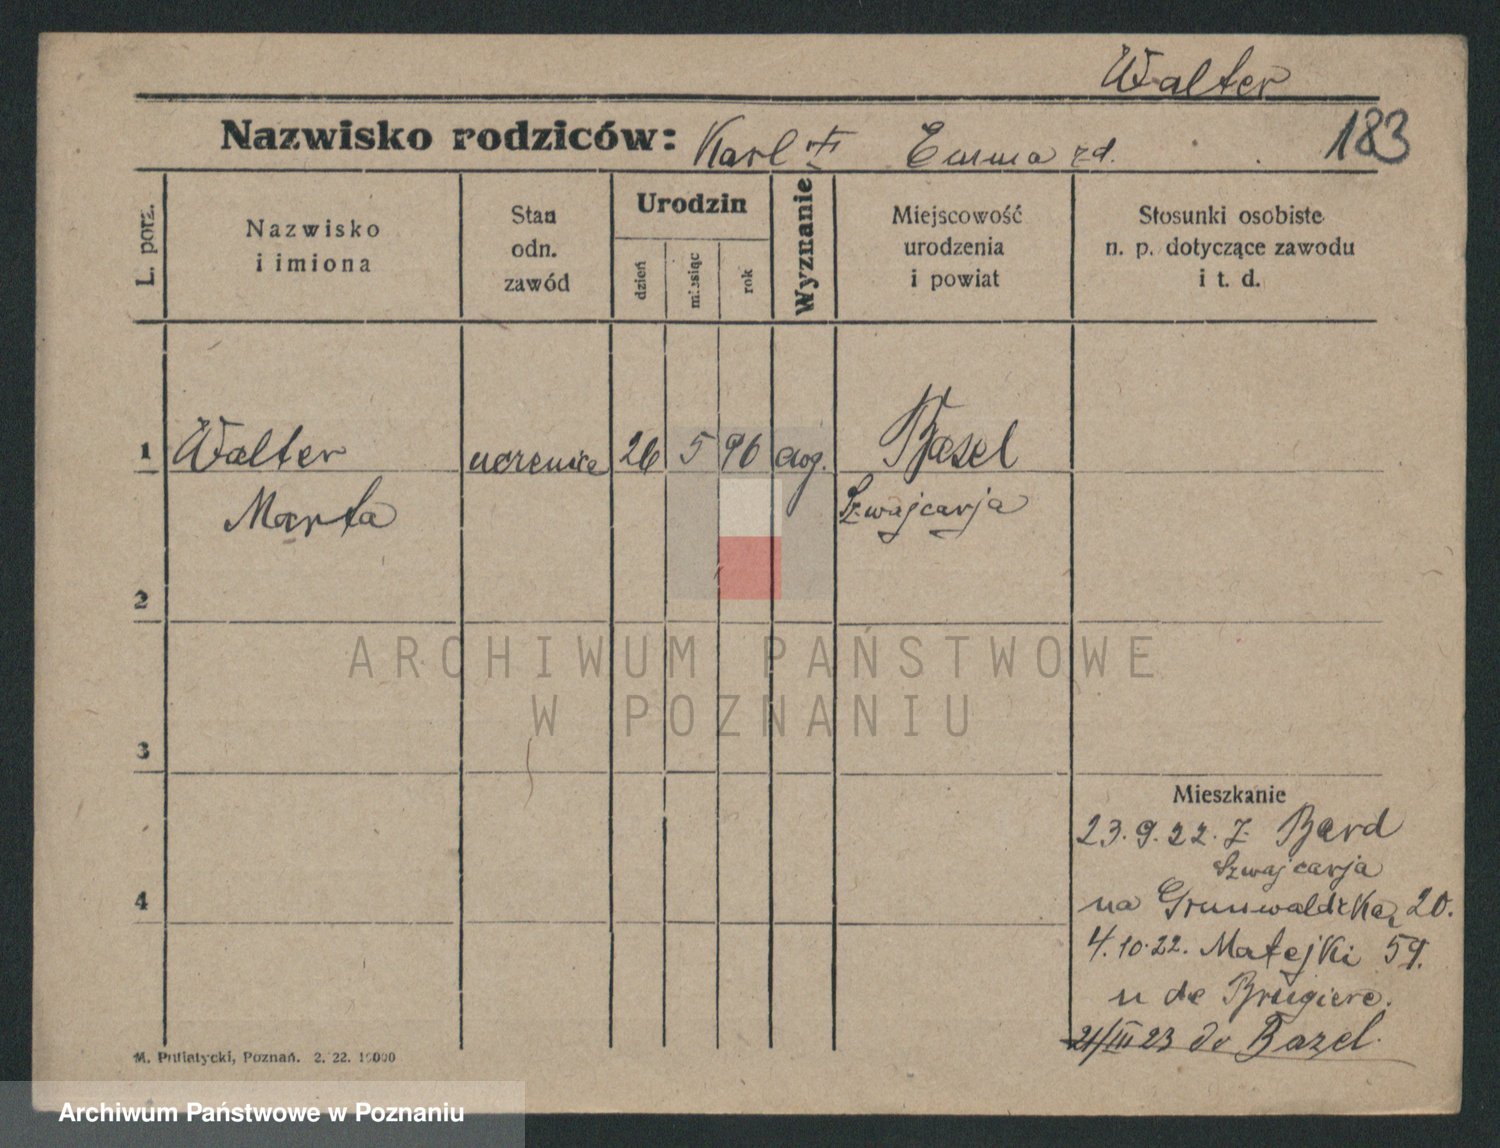 Walter
Nazwisko rodziców: Karl Emma zd.
183
L. porz.
Nazwisko
i imiona
Stan
odn.
zawód
Urodzin
dzień
miesiąc
rok
Wyznanie
Miejscowość
urodzenia
i powiat
Stosunki osobiste
n. p. dotyczące zawodu
i t. d.
1 Walter 26 5 96 Basel
Marta Szwajcarja
2
ARCHIWUM PAŃSTWOWE
W POZNANIU
3
Mieszkanie
23.9.22. Z
Szwajcarja
4
na Grunwaldzką 20.
4.10.22. Matejki 59.
u de Brugiere.
21/III 23 do Bazel.
M. Putiatycki, Poznań. 2. 22. 10000
Archiwum Państwowe w Poznaniu